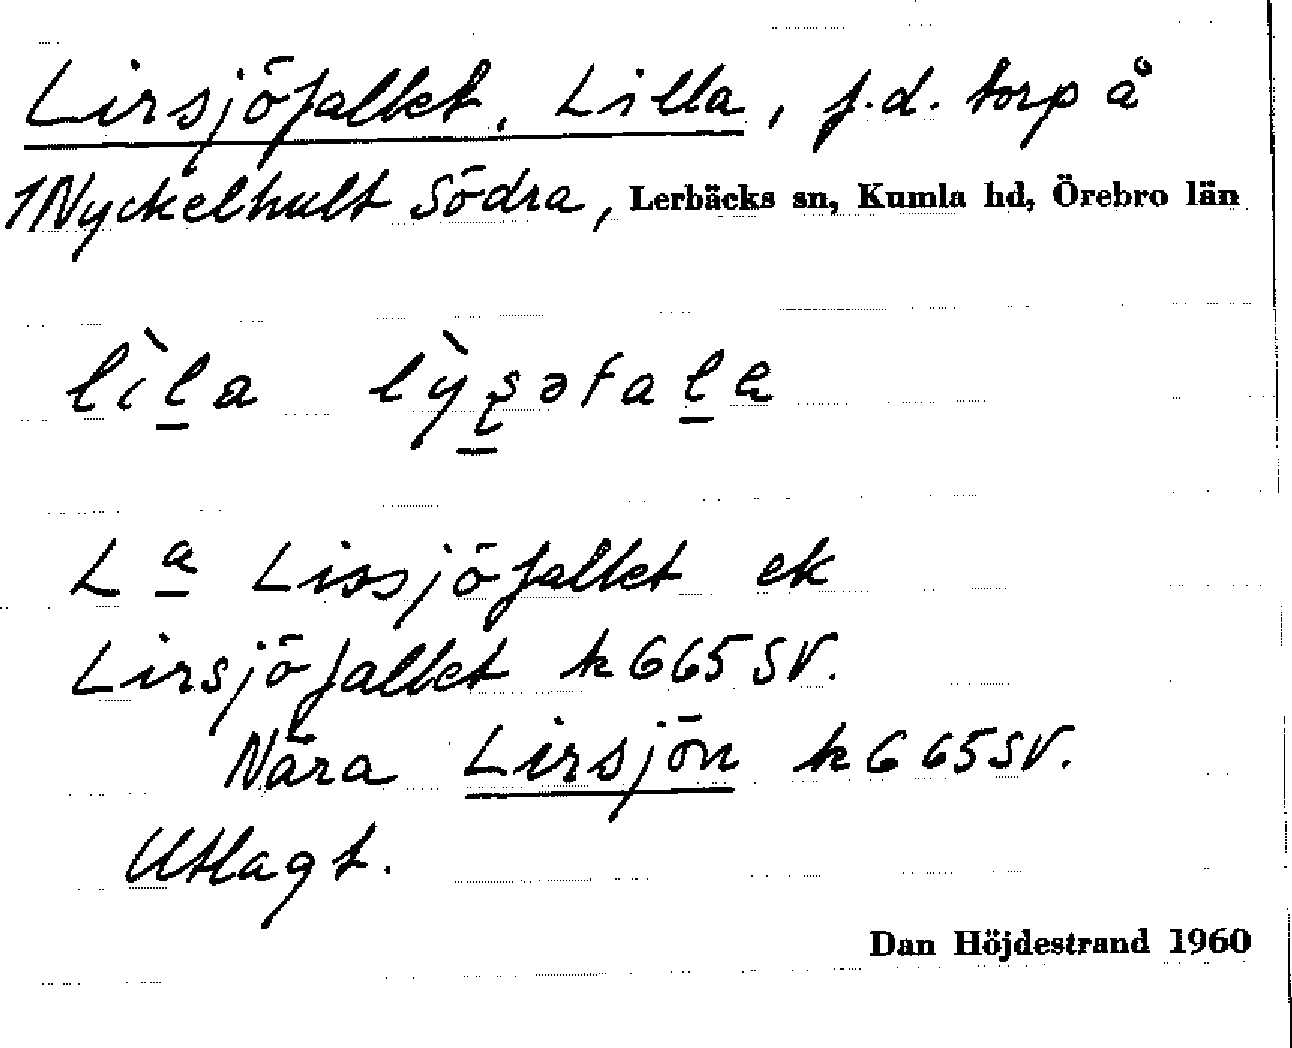 Lirsjöfallet, Lilla, f.d. torp å
1 Nyckelhult Södra, Lerbäcks sn, Kumla hd, Örebro län
lìl̲a lỳʂ̲əfal̲a
L a̲ Lissjöfallet ek
Lirsjöfallet k 665 SV.
Nära Lirsjön k 665 SV.
Utlagt.
Dan Höjdestrand 1960